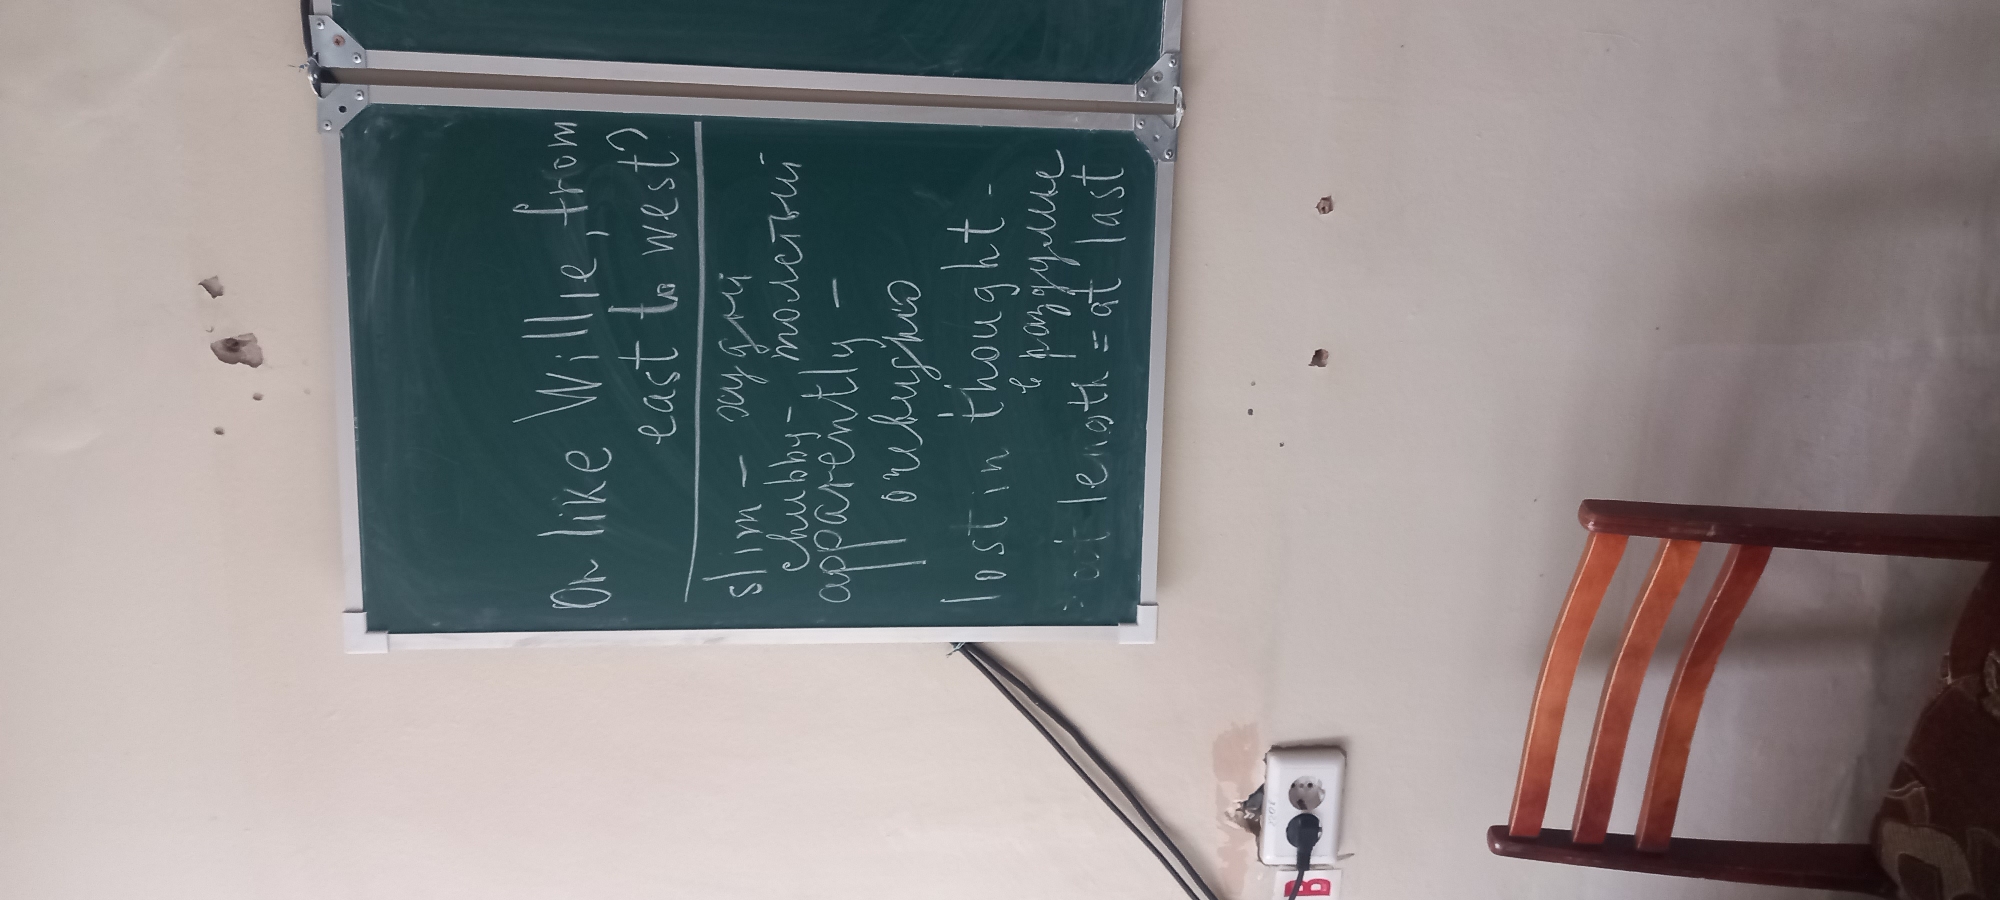 Or like Wille, from
east to west?
slim - худой
chubby - толстый
apparently -
очевидно
lost in thought -
в раздумье
at length = at last
B